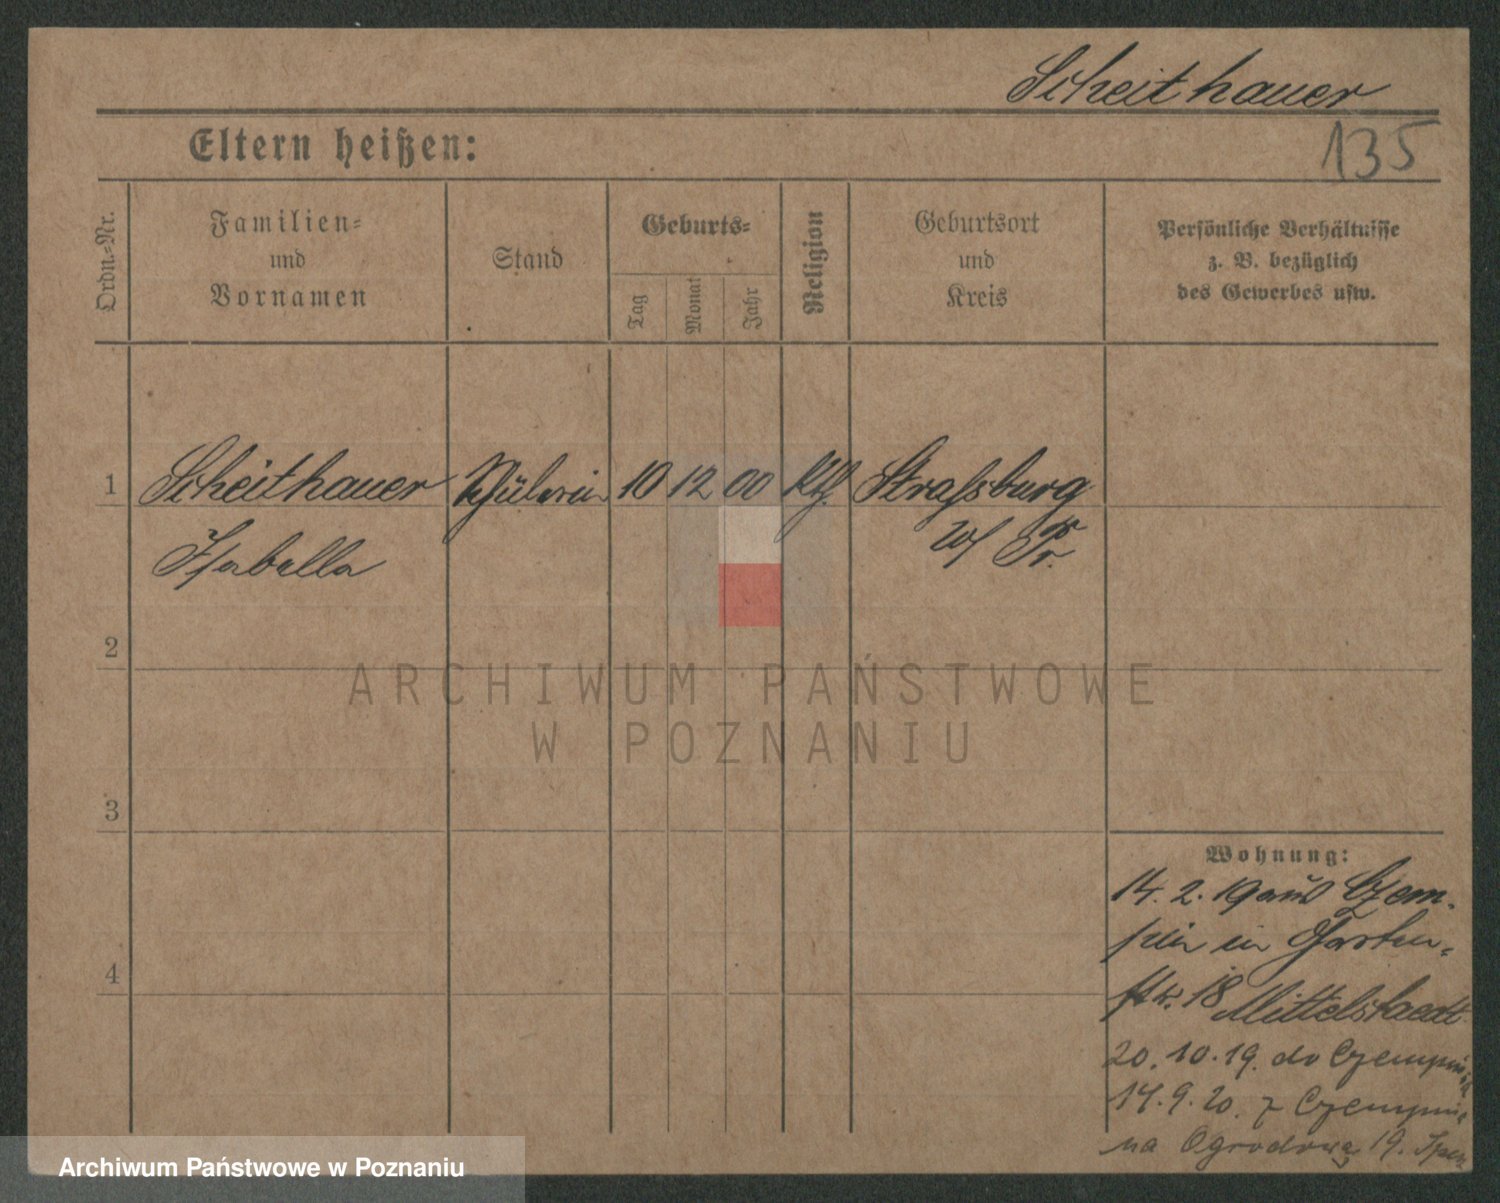 Scheithauer
135
Eltern heißen:
Ordn.-Nr.
Familien-
und
Vornamen
Stand
Geburts-
Tag
Monat
Jahr
Religion
Geburtsort
und
Kreis
Persönliche Verhältnisse
z. B. bezüglich
des Gewerbes usw.
1 Scheithauer Schülerin 10 12 00 Kth. Strassburg
Isabella W/Pr.
2
ARCHIWUM PAŃSTWOWE
W POZNANIU
3
Wohnung:
14. 2. 19 aus Czem-
pin in Garten-
str. 18 Mittelstaedt
4
20. 10. 19. do Czempinia
14. 9. 20. z Czempinia
na Ogrodową 19.
Archiwum Państwowe w Poznaniu